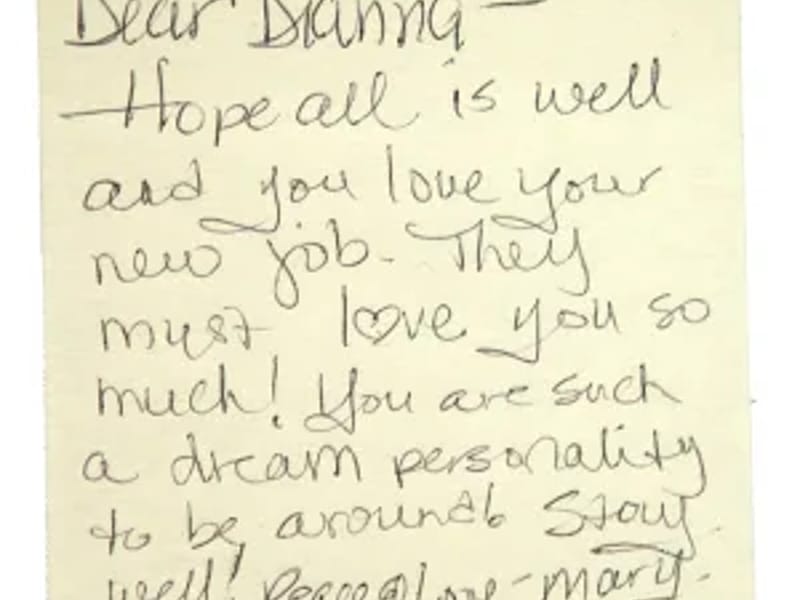 Dear Dianna -
Hope all is well
and you love your
new job. They
must love you so
much! You are such
a dream personality
to be around. Stay
well! Peace & Love - Mary.